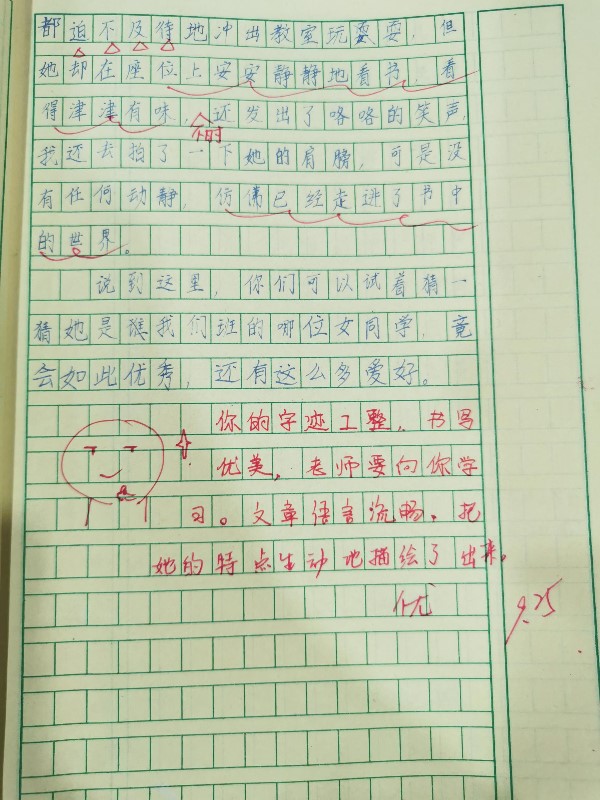 都迫不及待地冲出教室玩耍耍，但
她却在座位上安安静静地看书，看
得津津有味，不时还发出了咯咯的笑声，
我还去拍了一下她的肩膀，可是没
有任何动静，仿佛已经走进了书中
的世界。
说到这里，你们可以试着猜一
猜她是谁我们班的哪位女同学，竟
会如此优秀，还有这么多爱好。
你的字迹工整，书写
优美，老师要向你学
习。文章语言流畅，把
她的特点生动地描绘了出来。
优
9.25